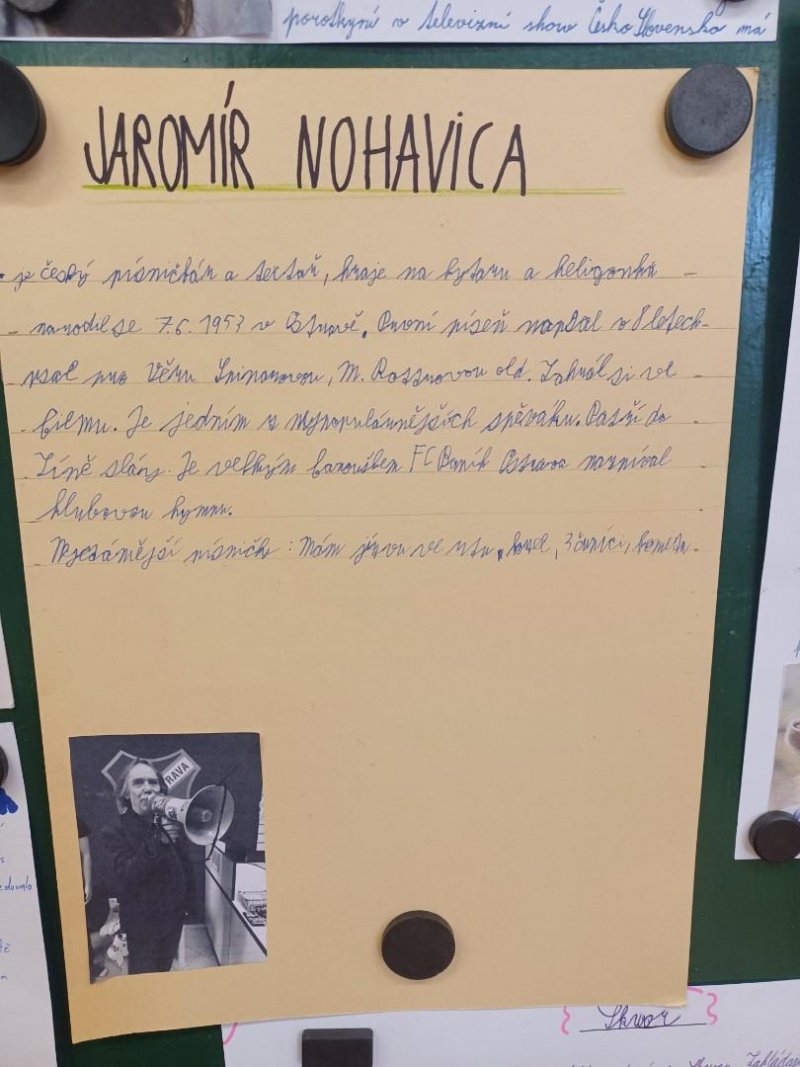 porotkyní v televizní show Česko Slovensko má
JAROMÍR NOHAVICA
je český písničkář a textař, hraje na kytaru a heligonku
narodil se 7.6. 1953 v Ostravě. První píseň napsal v 8 letech
psal pro Věru Špinarovou, M. Rottrovou atd. Zahrál si ve
filmu. Je jedním z nejpopulárnějších zpěváku. Patří do
síně slávy. Je velkým fanouškem FC Baník Ostrava nazpíval
klubovou hymnu.
Nejznámější písničk: Mám jizvu na rtu, 3 čuníci, kometa.
RAVA
Skwor